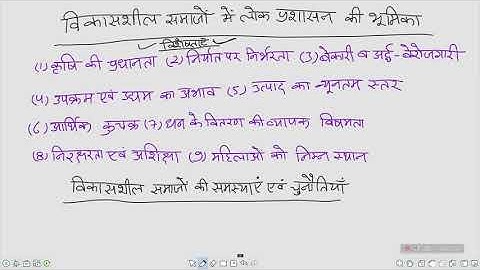 विकासशील समाजों में लोक प्रशासन की भूमिका
विशेषताएं
(1) कृषि की प्रधानता (2) निर्यात पर निर्भरता (3) बेकारी व अर्द्ध-बेरोजगारी
(4) उपक्रम एवं उद्यम का अभाव (5) उत्पाद का न्यूनतम स्तर
(6) आर्थिक कुचक्र (7) धन के वितरण की व्यापक विषमता
(8) निरक्षरता एवं अशिक्षा (9) महिलाओं को निम्न स्थान
विकासशील समाजों की समस्याएं एवं चुनौतियाँ